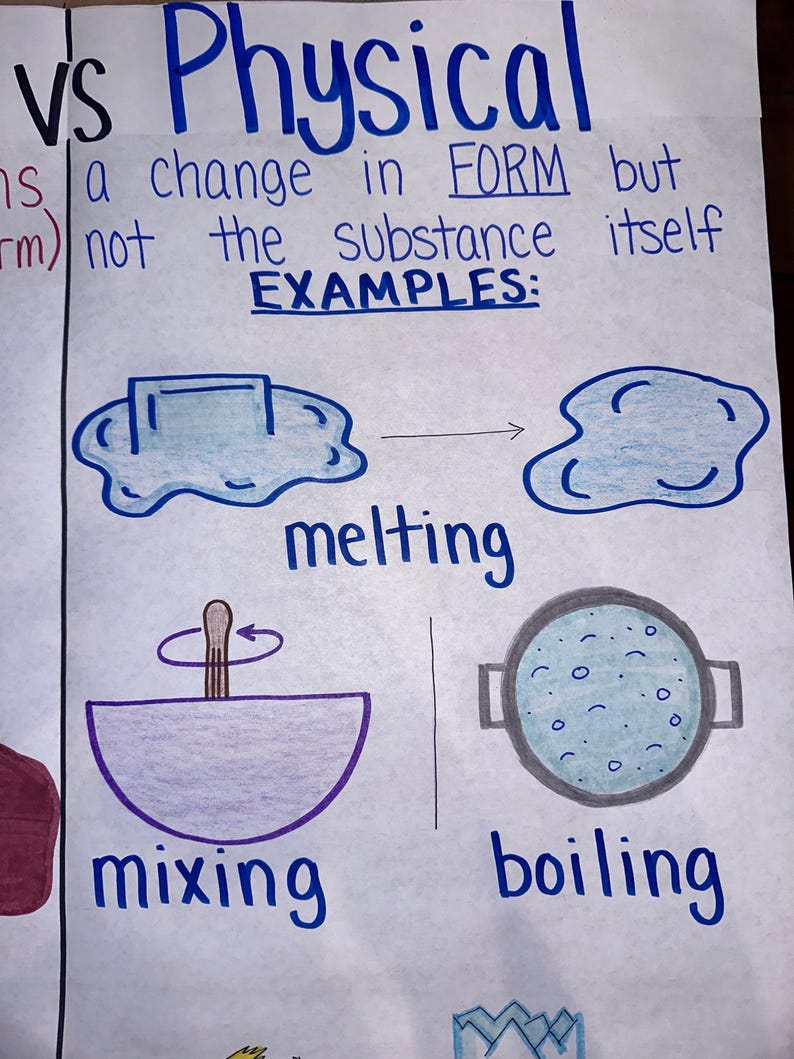 vs Physical
a change in FORM but
rm) not the substance itself
EXAMPLES:
melting
mixing
boiling